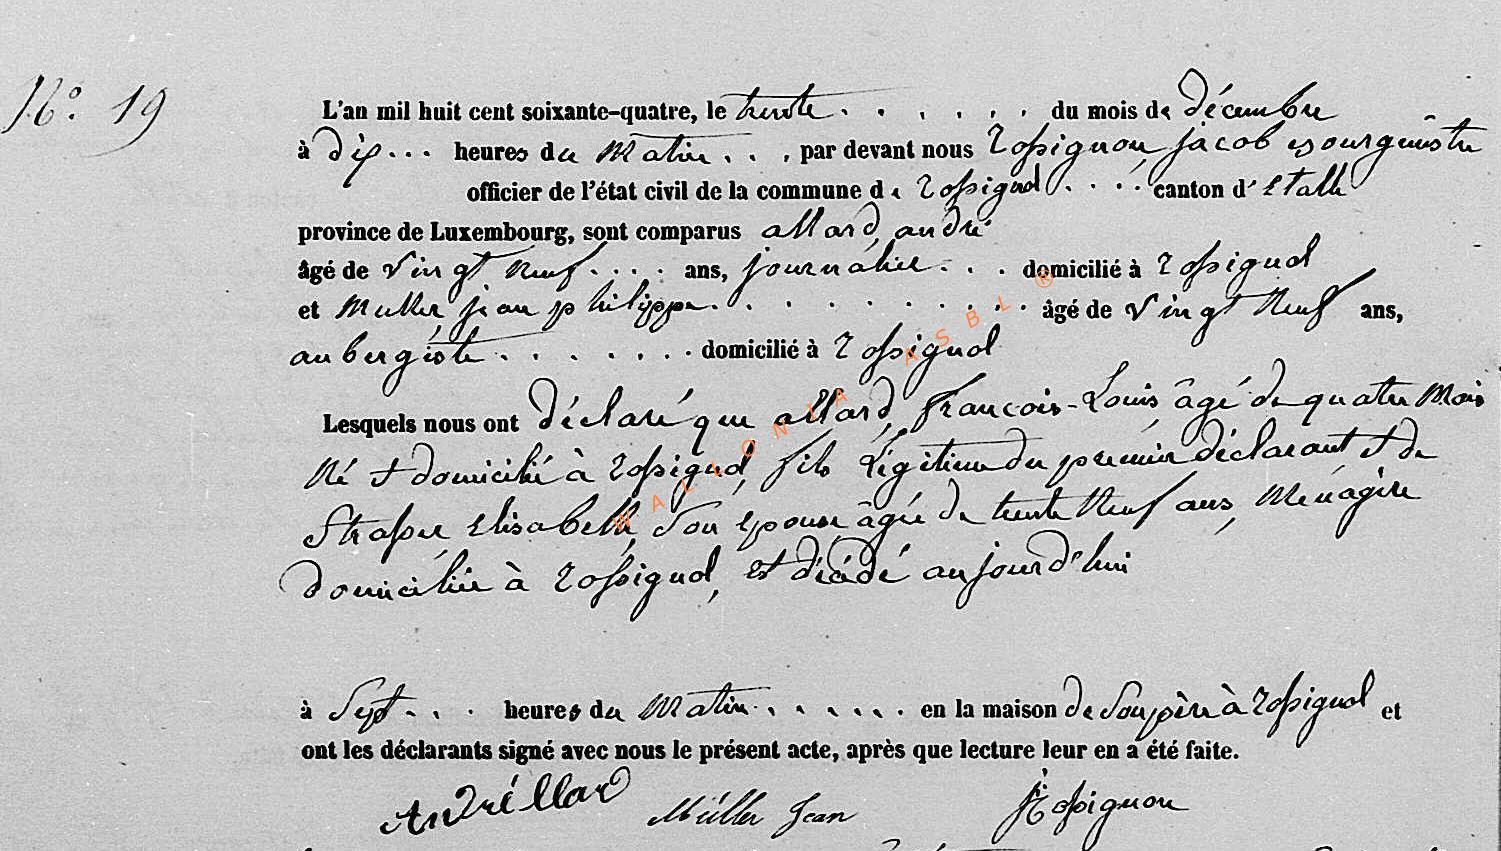 N° 19
L'an mil huit cent soixante-quatre, le trente . . . . . . du mois de décembre
à dix ... heures du matin . . . par devant nous Rossignon, jacob Bourguinstre
officier de l'état civil de la commune de Rossignol . . . . canton d' Etalle
province de Luxembourg, sont comparus allard, andré
âgé de vingt neuf . . . . ans, journalier . . . domicilié à Rossignol
et Muller jean philippe . . . . . . . . . . âgé de vingt neuf ans,
aubergiste . . . . . . . domicilié à Rossignol
Lesquels nous ont déclaré que allard, francois-Louis âgé de quatre mois
né et domicilié à Rossignol, fils Légitime du premier déclarant et de
Strasser Elisabeth, son épouse, âgée de trente neuf ans, Ménagère
domiciliée à Rossignol, est décédé aujourd'hui
à sept . . . heures du matin . . . . . . en la maison de son père à Rossignol et
ont les déclarants signé avec nous le présent acte, après que lecture leur en a été faite.
André llard Müller Jean JRossignon
WALLONIA ASBL ®